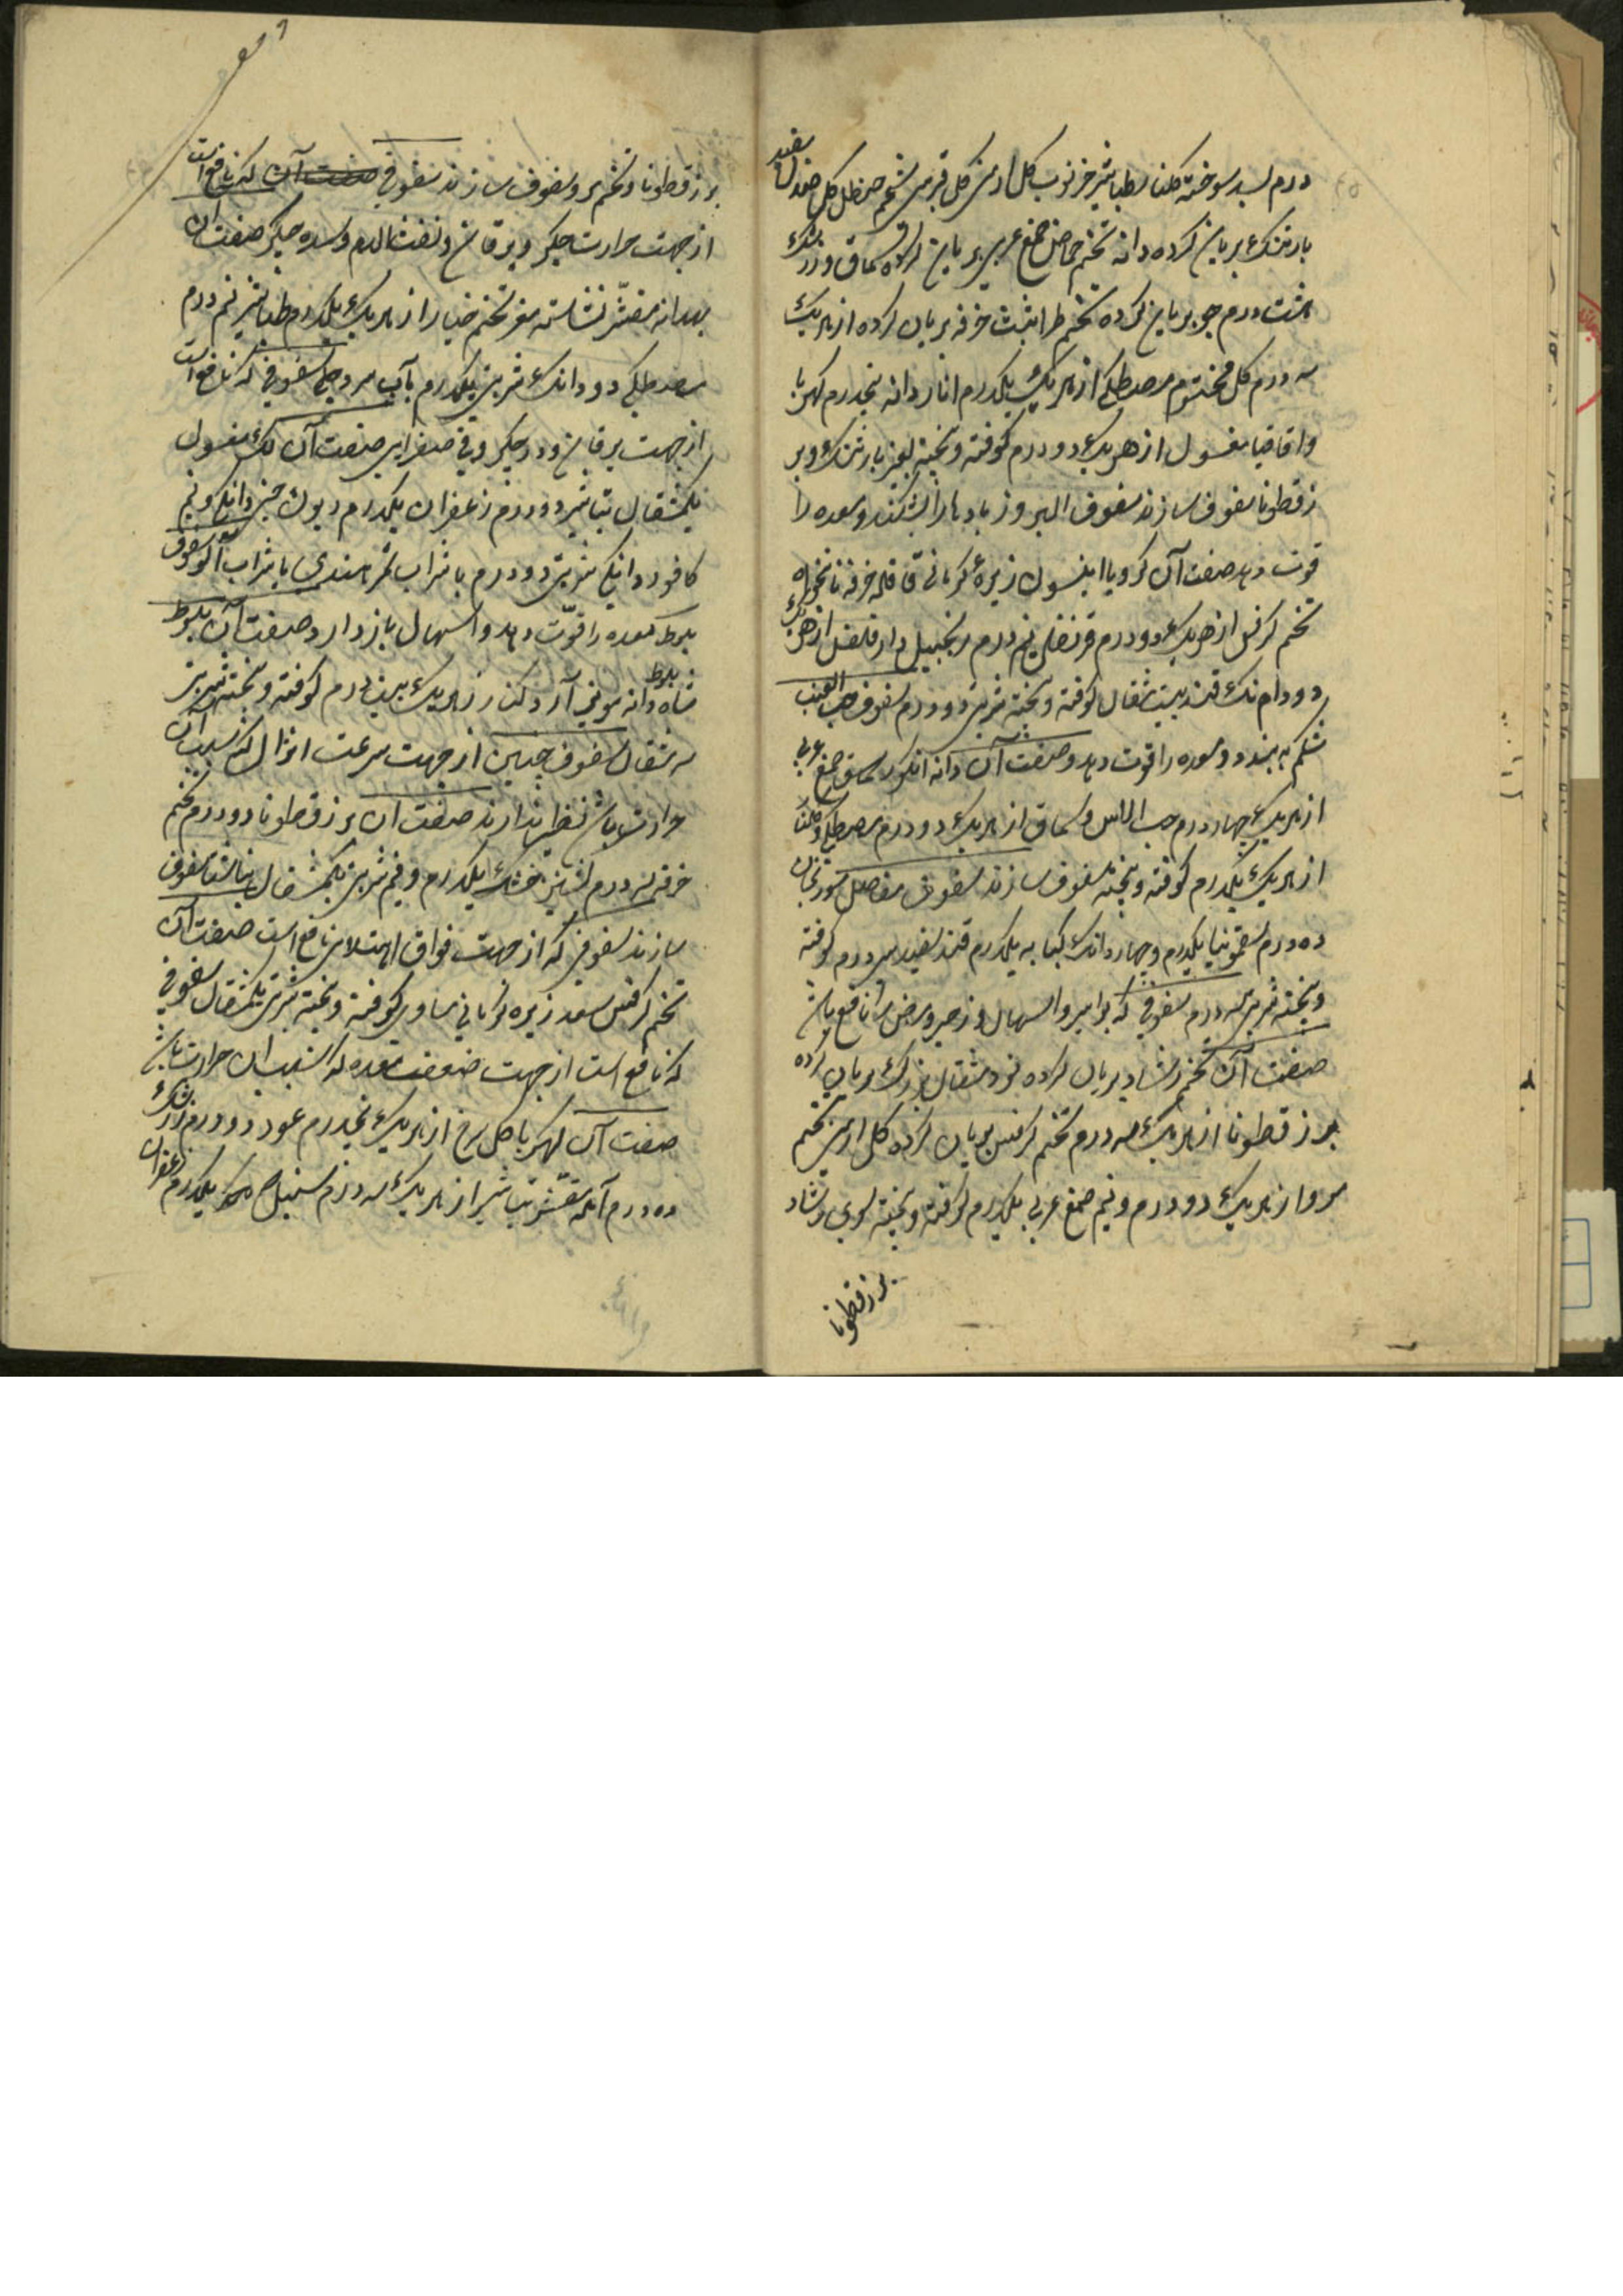 درم بسد سوخته کلنار طباشیر خرنوب کل ارمنی کل قبرسی شحم حنظل کل صندل سفید
بارتنک بریان کرده دانه تخم حماض صمغ عربی بریان کرده سماق و زرشک
هشت درم جو بریان کرده تخم طراثیث خرفه بریان کرده از هریک
سه درم کل مختوم مصطکی از هریک یکدرم انار دانه پنجدرم کهربا
واقاقیا مغسول از هریک دو درم کوفته و بیخته بغیر بارتنک و بر
زقطونا سفوف سازند سفوف البزور بادها را بشکند و معده را
قوت دهد صفت آن کرویا انیسون زیره کرمانی قاقله خرفه نانخواه
تخم کرفس از هریک دو درم قرنفل نیم درم زنجبیل دارفلفل از هریک
دو دام نک قند بیست مثقال کوفته و بیخته شربتی دو درم سفوف حب العنب
شکم به بندد و معده را قوت دهد و صفت آن دانه انکور سماق صمغ عربی
از هریک چهار درم حب الاس و سماق از هریک دو درم مصطکی و کلنار
از هریک یکدرم کوفته و بیخته سفوف سازند سفوف مفاصل سورنجان
ده درم سقمونیا یکدرم و چهار دانک کبابه یکدرم قند سفید سی درم کوفته
و بیخته شربتی سه درم سفوفی که بواسیر و اسهال و زحیر و مرض را نافع باشد
صفت آن تخم رشاد بریان کرده نود مثقال بزرک بریان کرده
بزرقطونا از هریک سه درم تخم کرفس بریان کرده کل ارمنی تخم
مرو از هریک دو درم و نیم صمغ عربی یکدرم کوفته و بیخته سوی رشاد
بزرقطونا
بزرقطونا و تخم مرو سفوف سازند سفوفی صفت آن که نافع است
از جهت حرارت جکر و یرقان و نفث الدم و سده جکر صفت آن
بهدانه مقشر نشاسته مغز تخم خیار از هریک یکدرم طباشیر نیم درم
مصطکی دو دانک شربتی یکدرم بآب سرد سفوفی که نافع است
از جهت یرقان و درد جکر و قی صفرایی صفت آن لک مغسول
یکمثقال تباشیر دو درم زعفران یکدرم ریوند چینی دانکی و نیم
کافور دانکی شربتی دو درم با شراب تمر هندی یا شراب آلو سفوف
بلوط معده را قوت دهد و اسهال باز دارد صفت آن بلوط
شاه بلوط دانه مویز آرد کنار از هریک بیست درم کوفته و بیخته شربتی
سه مثقال سفوف جهت از جهت سرعت انزال که بسبب آن
حرارت باشد نظیر ندارند صفت آن بزرقطونا دو درم تخم
خرفه سه درم کشنیز خشک یکدرم و نیم شربتی یکمثقال سفوف
سازند سفوفی که از جهت فواق امتلایی نافع است صفت آن
تخم کرفس سعد زیره کرمانی مساوی کوفته و بیخته شربتی یکمثقال سفوفی
که نافع است از جهت ضعف معده که بسبب آن حرارت باشد
صفت آن کهربا کل سرخ از هریک پنجدرم عود دو درم زرشک
ده درم آمله مقشر تباشیر از هریک سه درم سنبل یکدرم زعفران